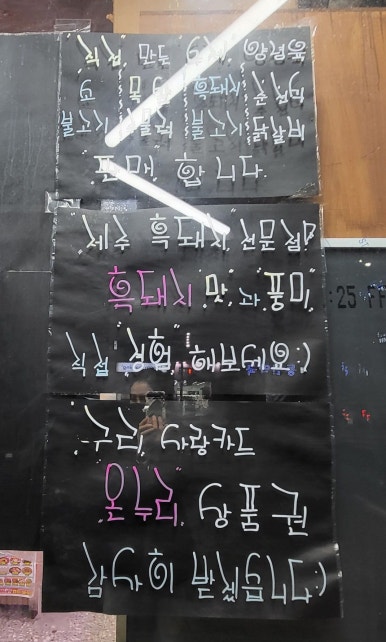 "직접 만든 수제 양념육
목살 흑돼지
불고기 불고기 닭갈비
판매 합니다."
"제주 흑돼지 전문점"
"흑돼지" 맛과 풍미
직접 "체험" 해보세요:)
"구리" 사랑카드
"온누리" 상품권
감사히 받겠습니다:)